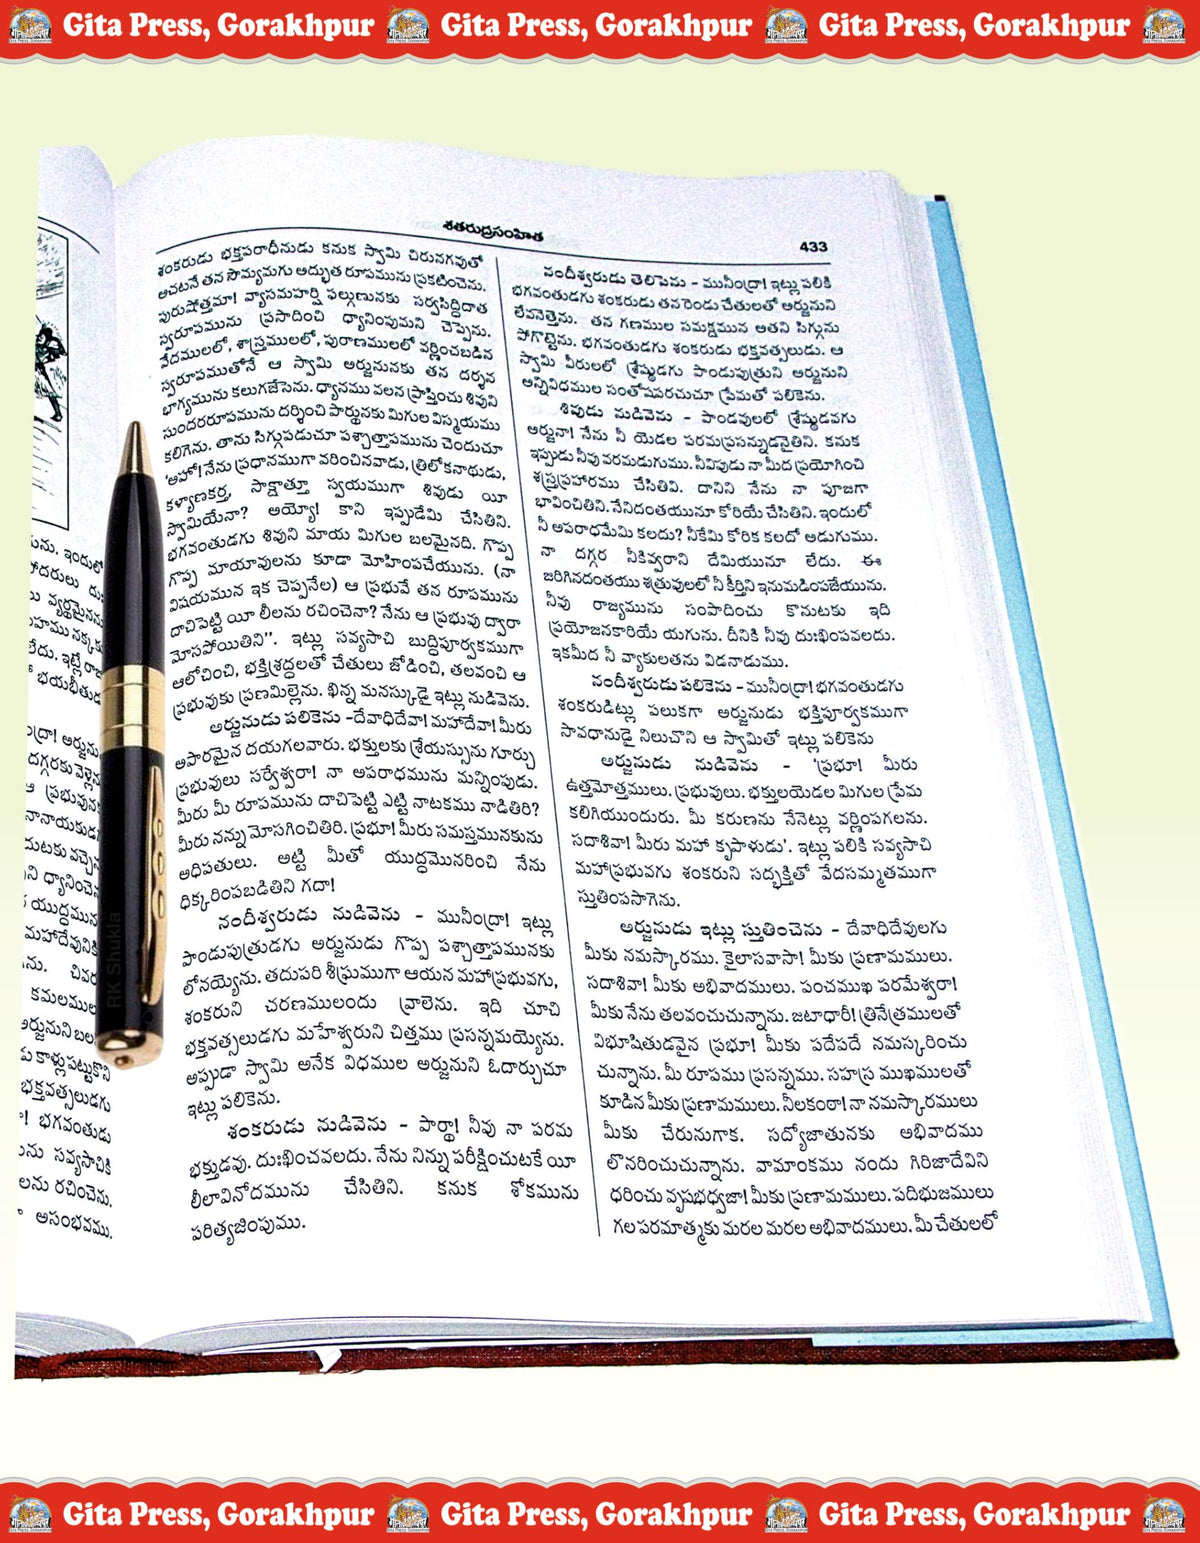 Gita Press, Gorakhpur Gita Press, Gorakhpur Gita Press, Gorakhpur
శతరుద్రసంహిత
433
ును. ఇందులో
సోదరులు దుః
వ్యర్థమైనను
నక్కకు
లేదు. ఇట్లే రా
భయభీతుడ
ంద్రా! అర్జును
దగ్గరకు వెళ్లెను
ఆ ప్రభువున
నానాయకుడగ
దుటకు వచ్చెన
ని ధ్యానించెన
యుద్ధమున
మహాదేవునికి
ను. చివర
కమలముల
అర్జునుని బల
కాళ్లుపట్టుకొని
భక్తవత్సలుడగు
ా! భగవంతుడు
ును సవ్యసాచికి
లను రచించెను.
అసంభవము.
శంకరుడు భక్తపరాధీనుడు కనుక స్వామి చిరునగవుతో
అచటనే తన సౌమ్యమగు అద్భుత రూపమును ప్రకటించెను.
పురుషోత్తమా! వ్యాసమహర్షి ఫల్గుణునకు సర్వసిద్ధిదాత
స్వరూపమును ప్రసాదించి ధ్యానింపుమని చెప్పెను.
వేదములలో, శాస్త్రములలో, పురాణములలో వర్ణించబడిన
స్వరూపముతోనే ఆ స్వామి అర్జునునకు తన దర్శన
భాగ్యమును కలుగజేసెను. ధ్యానము వలన ప్రాప్తించు శివుని
సుందరరూపమును దర్శించి పార్థునకు మిగుల విస్మయము
కలిగెను. తాను సిగ్గుపడుచూ పశ్చాత్తాపమును చెందుచూ
'అహో! నేను ప్రధానముగా వరించినవాడు, త్రిలోకనాథుడు,
కళ్యాణకర్త, సాక్షాత్తూ స్వయముగా శివుడు యీ
స్వామియేనా? అయ్యో! కాని ఇప్పుడేమి చేసితిని.
భగవంతుడగు శివుని మాయ మిగుల బలమైనది. గొప్ప
గొప్ప మాయావులను కూడా మోహింపచేయును. (నా
విషయమున ఇక చెప్పనేల) ఆ ప్రభువే తన రూపమును
దాచిపెట్టి యీ లీలను రచించెనా? నేను ఆ ప్రభువు ద్వారా
మోసపోయితిని". ఇట్లు సవ్యసాచి బుద్ధిపూర్వకముగా
ఆలోచించి, భక్తిశ్రద్ధలతో చేతులు జోడించి, తలవంచి ఆ
ప్రభువుకు ప్రణమిల్లెను. ఖిన్న మనస్కుడై ఇట్లు నుడివెను.
అర్జునుడు పలికెను -దేవాధిదేవా! మహాదేవా! మీరు
అపారమైన దయగలవారు. భక్తులకు శ్రేయస్సును గూర్చు
ప్రభువులు సర్వేశ్వరా! నా అపరాధమును మన్నింపుడు.
మీరు మీ రూపమును దాచిపెట్టి ఎట్టి నాటకము నాడితిరి?
మీరు నన్ను మోసగించితిరి. ప్రభూ! మీరు సమస్తమునకును
అధిపతులు. అట్టి మీతో యుద్ధమొనరించి నేను
ధిక్కరింపబడితిని గదా!
నందీశ్వరుడు నుడివెను - మునీంద్రా! ఇట్లు
పాండుపుత్రుడగు అర్జునుడు గొప్ప పశ్చాత్తాపమునకు
లోనయ్యెను. తదుపరి శీఘ్రముగా ఆయన మహాప్రభువగు,
శంకరుని చరణములందు వ్రాలెను. ఇది చూచి
భక్తవత్సలుడగు మహేశ్వరుని చిత్తము ప్రసన్నమయ్యెను.
అప్పుడా స్వామి అనేక విధముల అర్జునుని ఓదార్చుచూ
ఇట్లు పలికెను.
శంకరుడు నుడివెను - పార్థా! నీవు నా పరమ
భక్తుడవు. దుఃఖించవలదు. నేను నిన్ను పరీక్షించుటకే యీ
లీలావినోదమును చేసితిని. కనుక శోకమును
పరిత్యజింపుము.
నందీశ్వరుడు తెలిపెను - మునీంద్రా! ఇట్లు పలికి
భగవంతుడగు శంకరుడు తన రెండు చేతులతో అర్జునుని
లేవనెత్తెను. తన గణముల సమక్షమున అతని సిగ్గును
పోగొట్టెను. భగవంతుడగు శంకరుడు భక్తవత్సలుడు. ఆ
స్వామి వీరులలో శ్రేష్ఠుడగు పాండుపుత్రుని అర్జునుని
అన్నివిధముల సంతోషపరచుచూ ప్రేమతో పలికెను.
శివుడు నుడివెను - పాండవులలో శ్రేష్ఠుడవగు
అర్జునా! నేను నీ యెడల పరమప్రసన్నుడనైతిని. కనుక
ఇప్పుడు నీవు వరమడుగుము. నీవిపుడు నా మీద ప్రయోగించి
శస్త్రప్రహారము చేసితివి. దానిని నేను నా పూజగా
భావించితిని. నేనిదంతయునూ కోరియే చేసితిని. ఇందులో
నీ అపరాధమేమి కలదు? నీకేమి కోరిక కలదో అడుగుము.
నా దగ్గర నీకివ్వరాని దేమియునూ లేదు. ఈ
జరిగినదంతయు శత్రువులలో నీ కీర్తిని ఇనుమడింపజేయును.
నీవు రాజ్యమును సంపాదించు కొనుటకు ఇది
ప్రయోజనకారియే యగును. దీనికి నీవు దుఃఖింపవలదు.
ఇకమీద నీ వ్యాకులతను విడనాడుము.
నందీశ్వరుడు పలికెను - మునీంద్రా! భగవంతుడగు
శంకరుడిట్లు పలుకగా అర్జునుడు భక్తిపూర్వకముగా
సావధానుడై నిలుచొని ఆ స్వామితో ఇట్లు పలికెను
అర్జునుడు నుడివెను - 'ప్రభూ! మీరు
ఉత్తమోత్తములు. ప్రభువులు. భక్తులయెడల మిగుల ప్రేమ
కలిగియుందురు. మీ కరుణను నేనెట్లు వర్ణింపగలను.
సదాశివా! మీరు మహా కృపాళుడు'. ఇట్లు పలికి సవ్యసాచి
మహాప్రభువగు శంకరుని సద్భక్తితో వేదసమ్మతముగా
స్తుతింపసాగెను.
అర్జునుడు ఇట్లు స్తుతించెను - దేవాధిదేవులగు
మీకు నమస్కారము. కైలాసవాసా! మీకు ప్రణామములు.
సదాశివా! మీకు అభివాదములు. పంచముఖ పరమేశ్వరా!
మీకు నేను తలవంచుచున్నాను. జటాధారీ! త్రినేత్రములతో
విభూషితుడవైన ప్రభూ! మీకు పదేపదే నమస్కరించు
చున్నాను. మీ రూపము ప్రసన్నము. సహస్ర ముఖములతో
కూడిన మీకు ప్రణామములు. నీలకంఠా! నా నమస్కారములు
మీకు చేరునుగాక. సద్యోజాతునకు అభివాదము
లొనరించుచున్నాను. వామాంకము నందు గిరిజాదేవిని
ధరించు వృషభధ్వజా! మీకు ప్రణామములు. పదిభుజములు
గల పరమాత్మకు మరల మరల అభివాదములు. మీ చేతులలో
RK Shukla
Gita Press, Gorakhpur Gita Press, Gorakhpur Gita Press, Gorakhpur